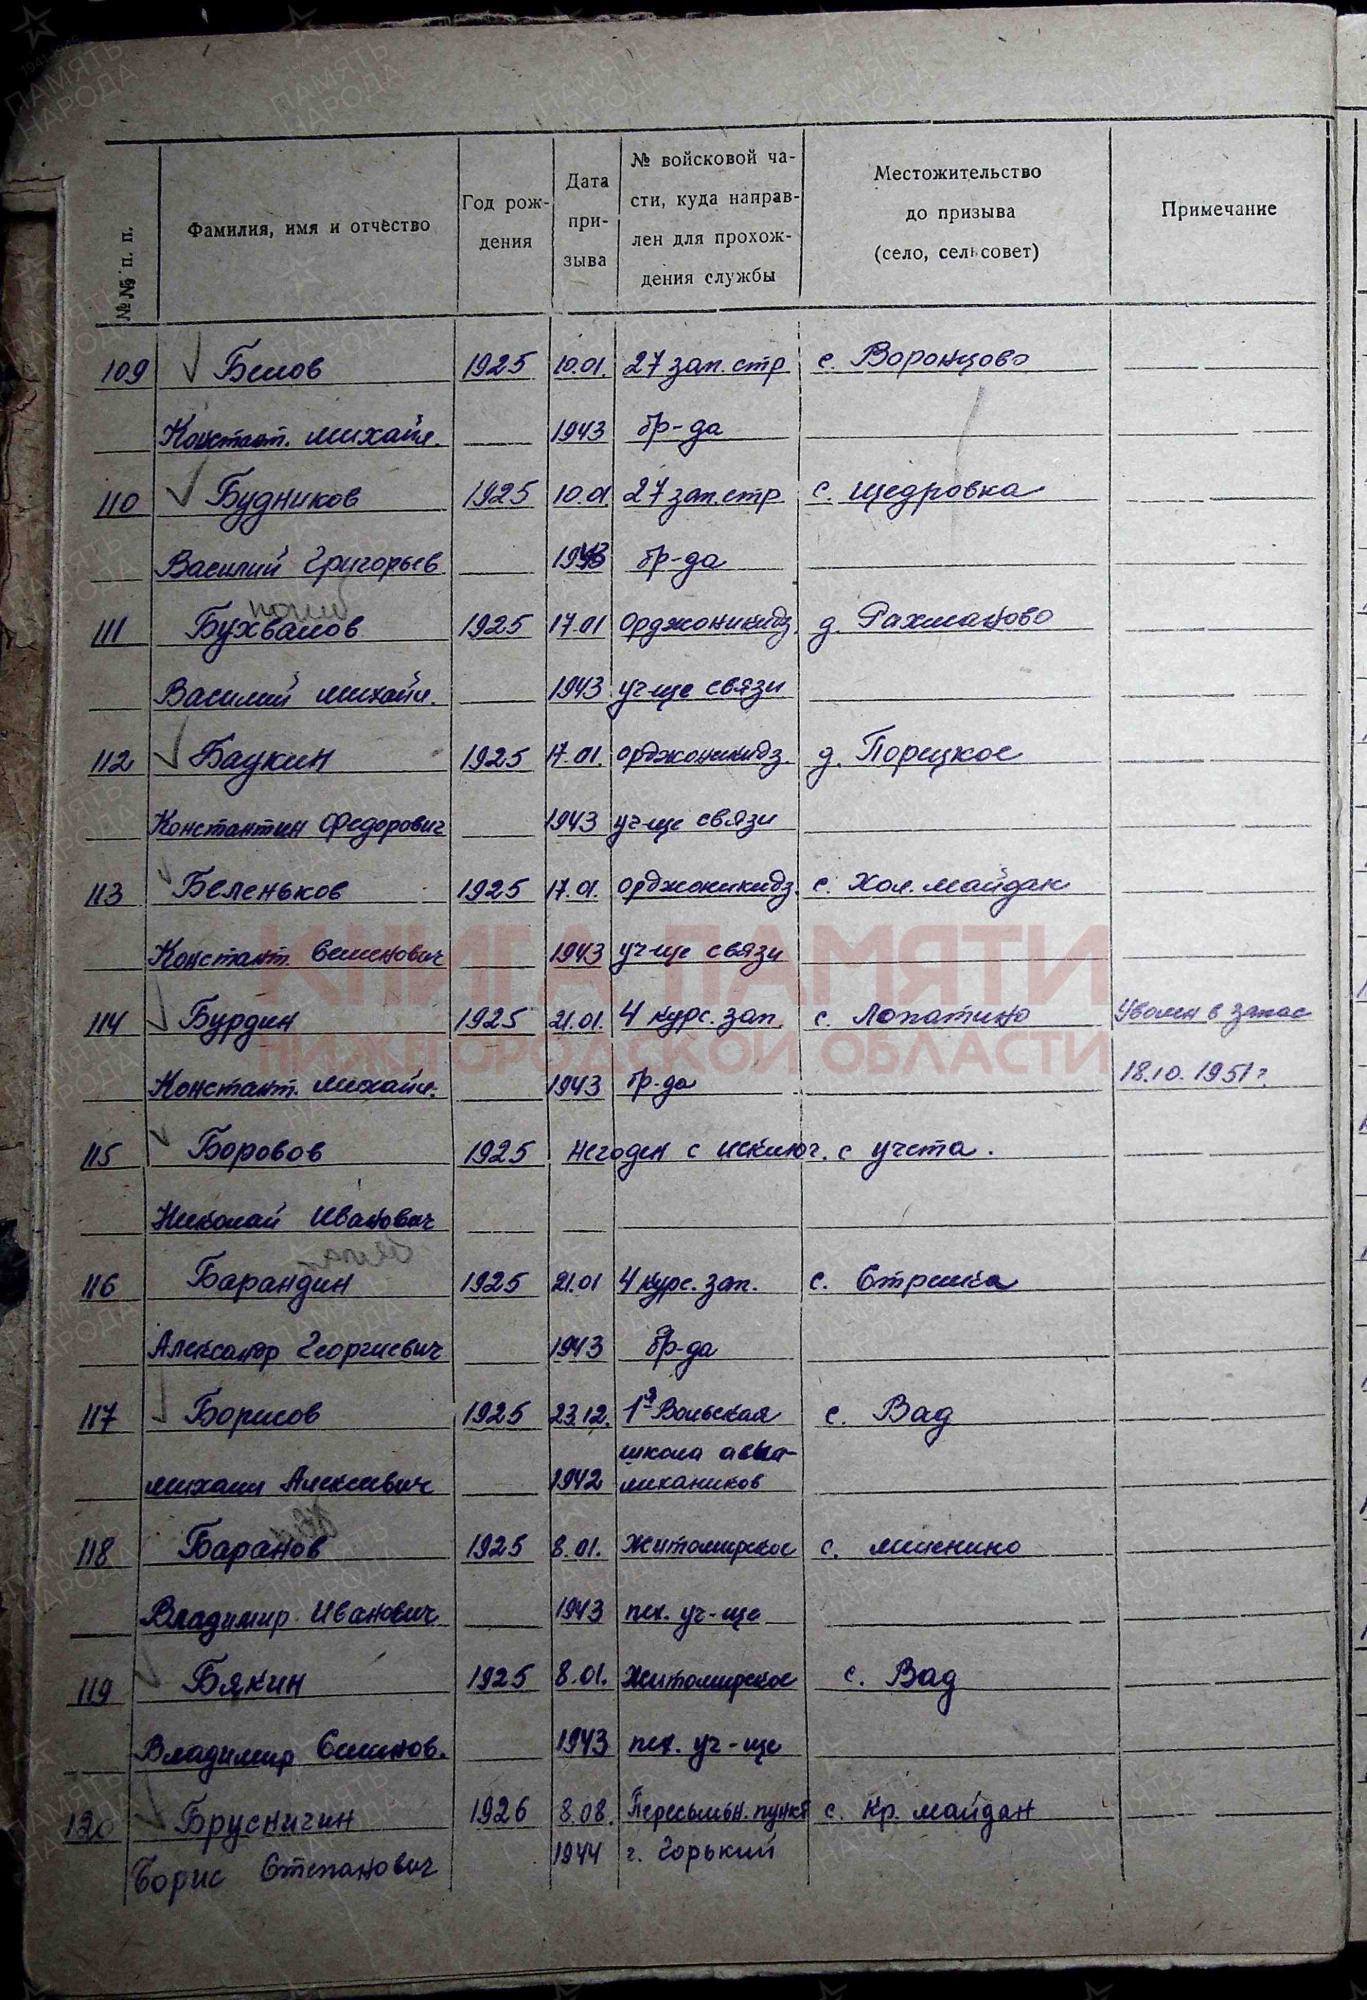 №№ п. п.
Фамилия, имя и отчество
Год рож-
дения
Дата
при-
зыва
№ войсковой ча-
сти, куда направ-
лен для прохож-
дения службы
Местожительство
до призыва
(село, сельсовет)
Примечание
109 Белов 1925 10.01. 27 зап. стр с. Воронцово
Констант. Михайл. 1943 бр-да
110 Будников 1925 10.01 27 зап. стр с. Щедровка
Василий Григорьев 1943 бр-да
погиб
111 Бухвалов 1925 17.01 Орджоникидз. д. Рахманово
Василий Михайл. 1943 уч-ще связи
112 Баукин 1925 17.01. Орджоникидз. д. Порецкое
Константин Федорович 1943 уч-ще связи
113 Беленьков 1925 17.01. Орджоникидз. с. Хол. Майдан
Констант. Семенович 1943 уч-ще связи
КНИГА ПАМЯТИ
114 Бурдин 1925 21.01. 4 курс. зап. с. Лопатино Уволен в запас
НИЖЕГОРОДСКОЙ ОБЛАСТИ
Констант. Михайл. 1943 бр-да 18.10.1951 г.
115 Боровов 1925 Негоден с исключ. с учета.
Николай Иванович
116 Барандин 1925 21.01 4 курс. зап. с. Стрелка
Александр Георгиевич 1943 бр-да
117 Борисов 1925 23.12. 1я Вольская с. Вад
школа авиа-
Михаил Алексеевич 1942 механиков
118 Баранов 1925 8.01. Житомирское с. Мишнино
Владимир Иванович 1943 пех. уч-ще
119 Бякин 1925 8.01. Житомирское с. Вад
Владимир Семенов. 1943 пех. уч-ще
120 Бруснигин 1926 8.08. Пересыльн. пункт с. Кр. Майдан
Борис Степанович 1944 г. Горький
ПАМЯТЬ
НАРОДА